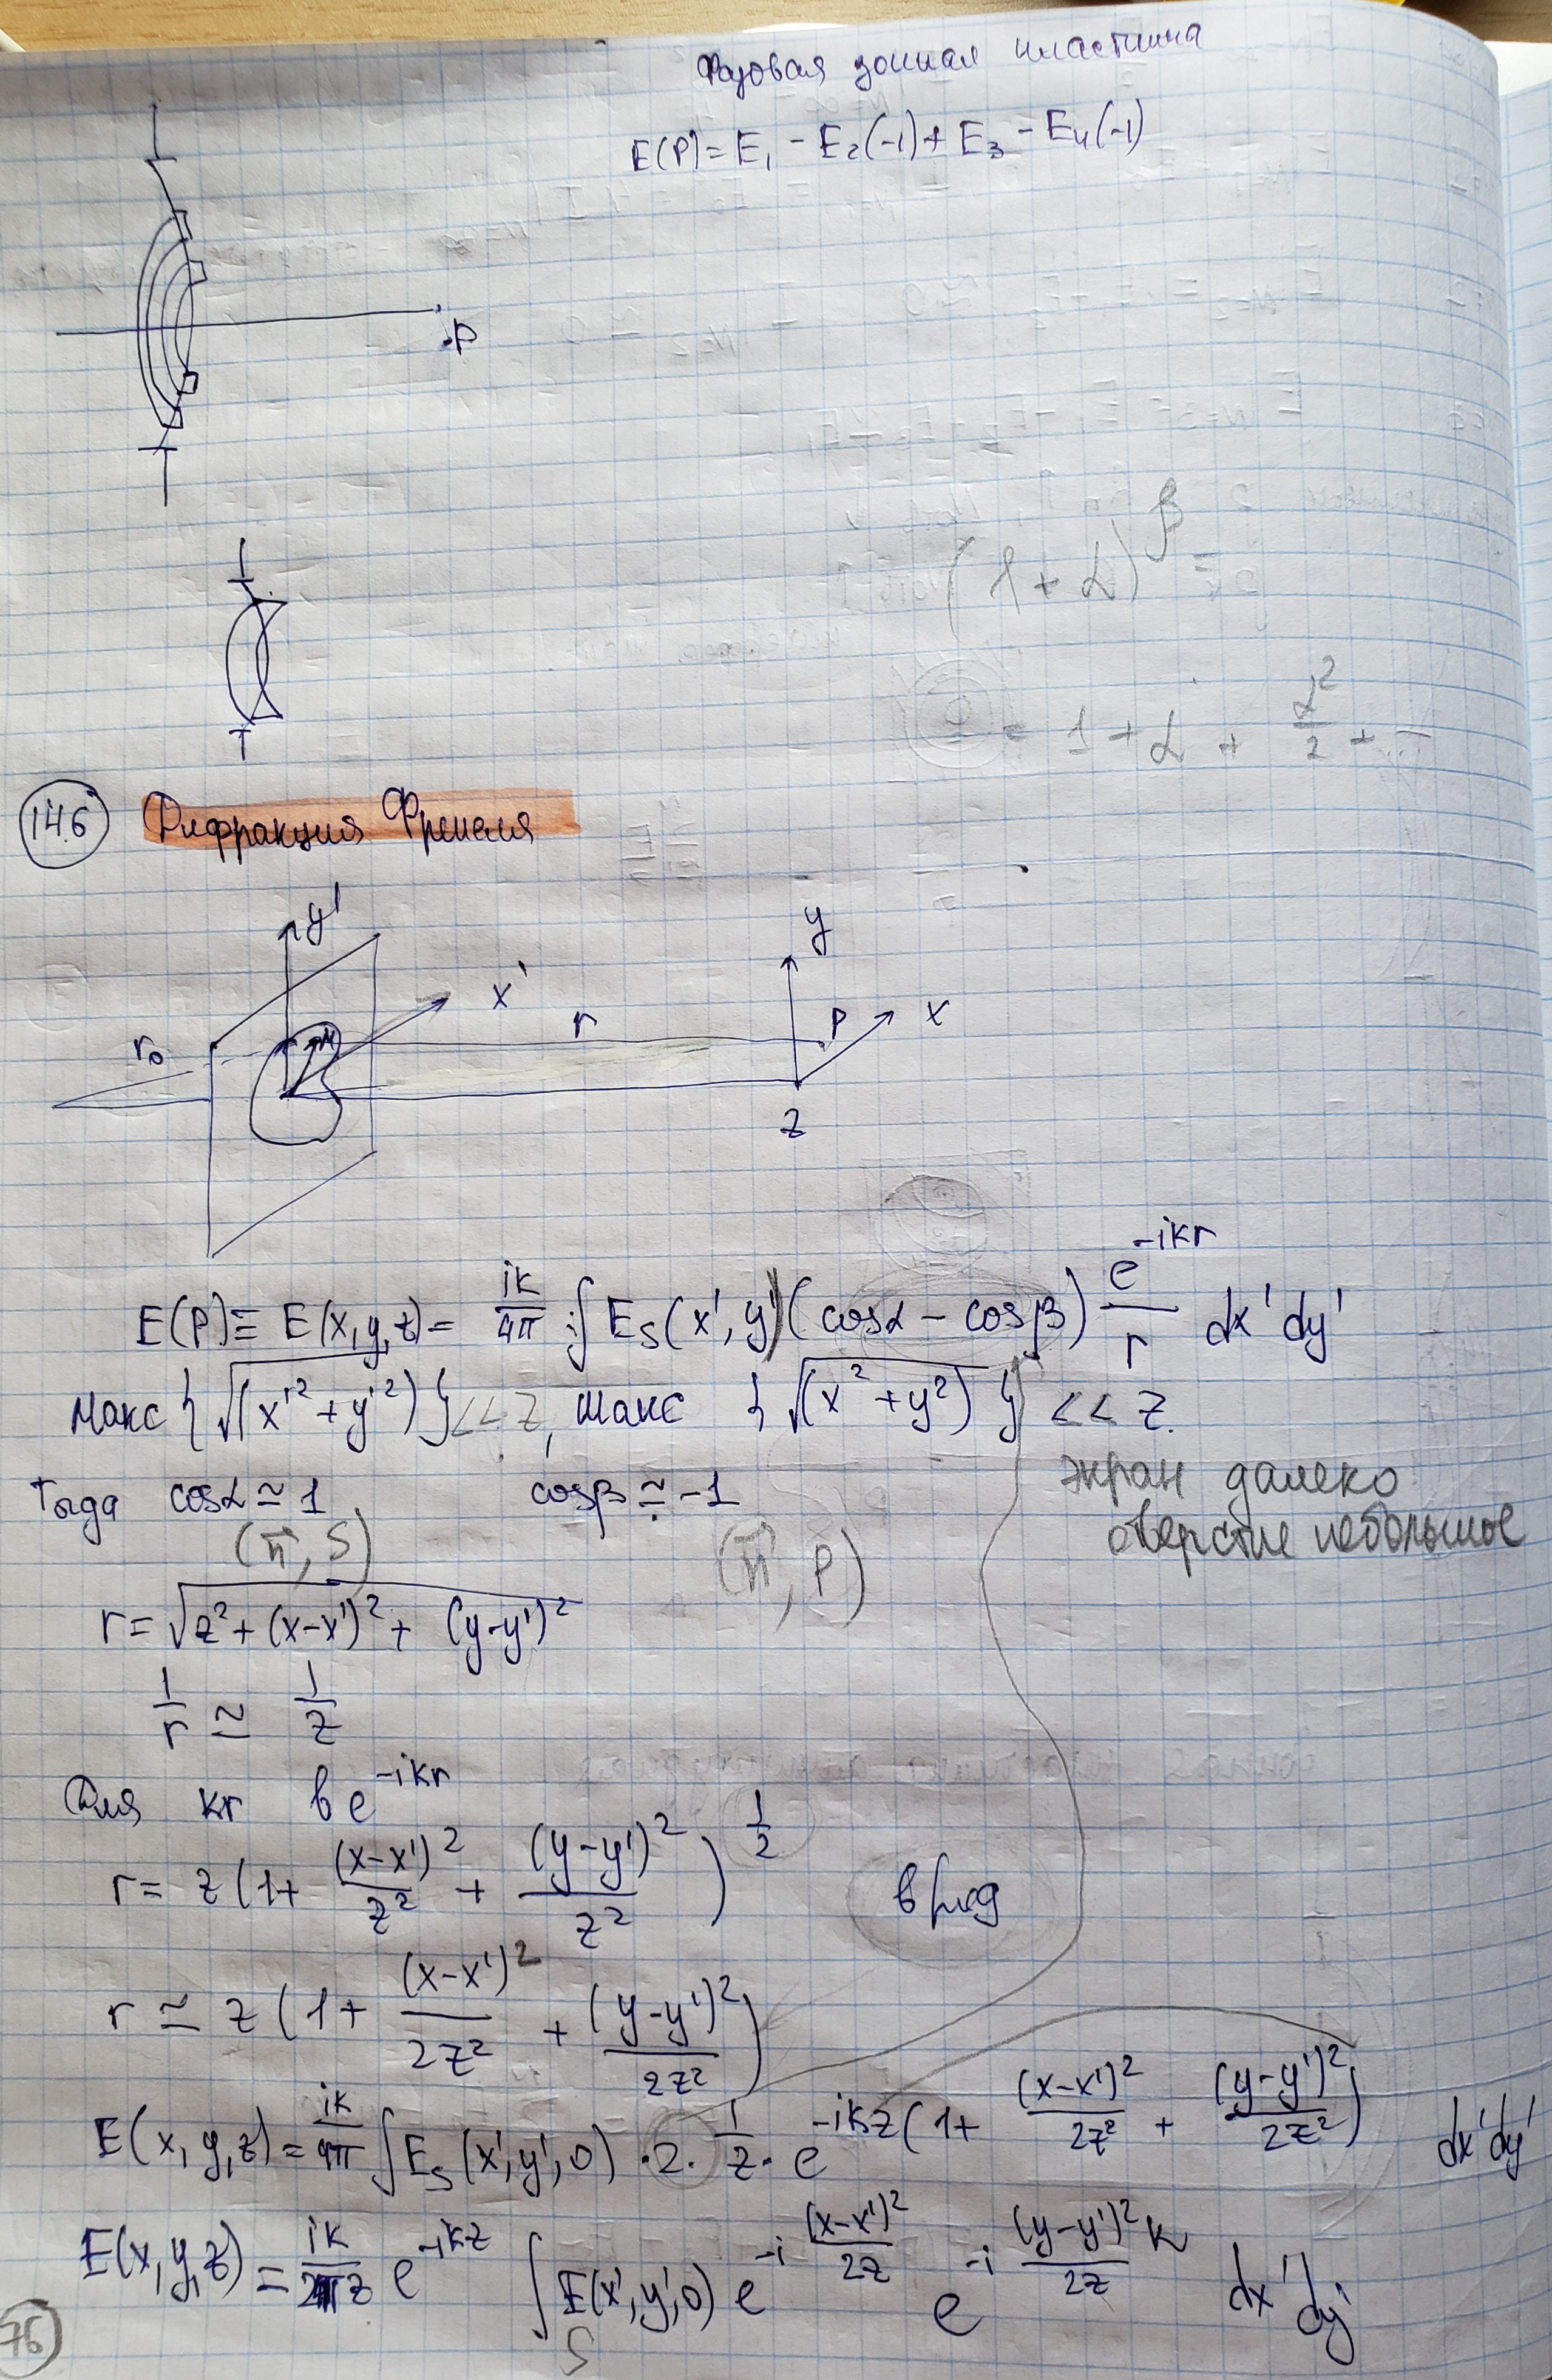 Фазовая зонная пластина
E(P)=E₁-E₂(-1)+E₃-E₄(-1)
P
(1+α)^β =
= 1+α+α²/2+...
14.6 Дифракция Френеля
y' x' r₀ M r y P x z
E(P)≡E(x,y,z)= ik/4π ∫E_S(x',y')(cosα-cosβ) e^{-ikr}/r dx'dy'
Макс {√(x'²+y'²)}<<z, макс {√(x²+y²)}<<z.
Тогда cosα≃1 cosβ≃-1
экран далеко
отверстие небольшое
(n⃗, S) (n⃗, P)
r=√z²+(x-x')²+(y-y')²
1/r ≃ 1/z
Для kr в e^{-ikr}
r= z(1+ (x-x')²/z² + (y-y')²/z²)^{1/2} в ряд
r≃z(1+ (x-x')²/2z² + (y-y')²/2z²)
E(x,y,z)= ik/4π ∫E_S(x',y',0)·2·1/z·e^{-ikz(1+ (x-x')²/2z² + (y-y')²/2z²)} dx'dy'
E(x,y,z)= ik/2πz e^{-ikz} ∫_S E(x',y',0) e^{-i (x-x')²/2z} e^{-i (y-y')²k/2z} dx'dy'
76